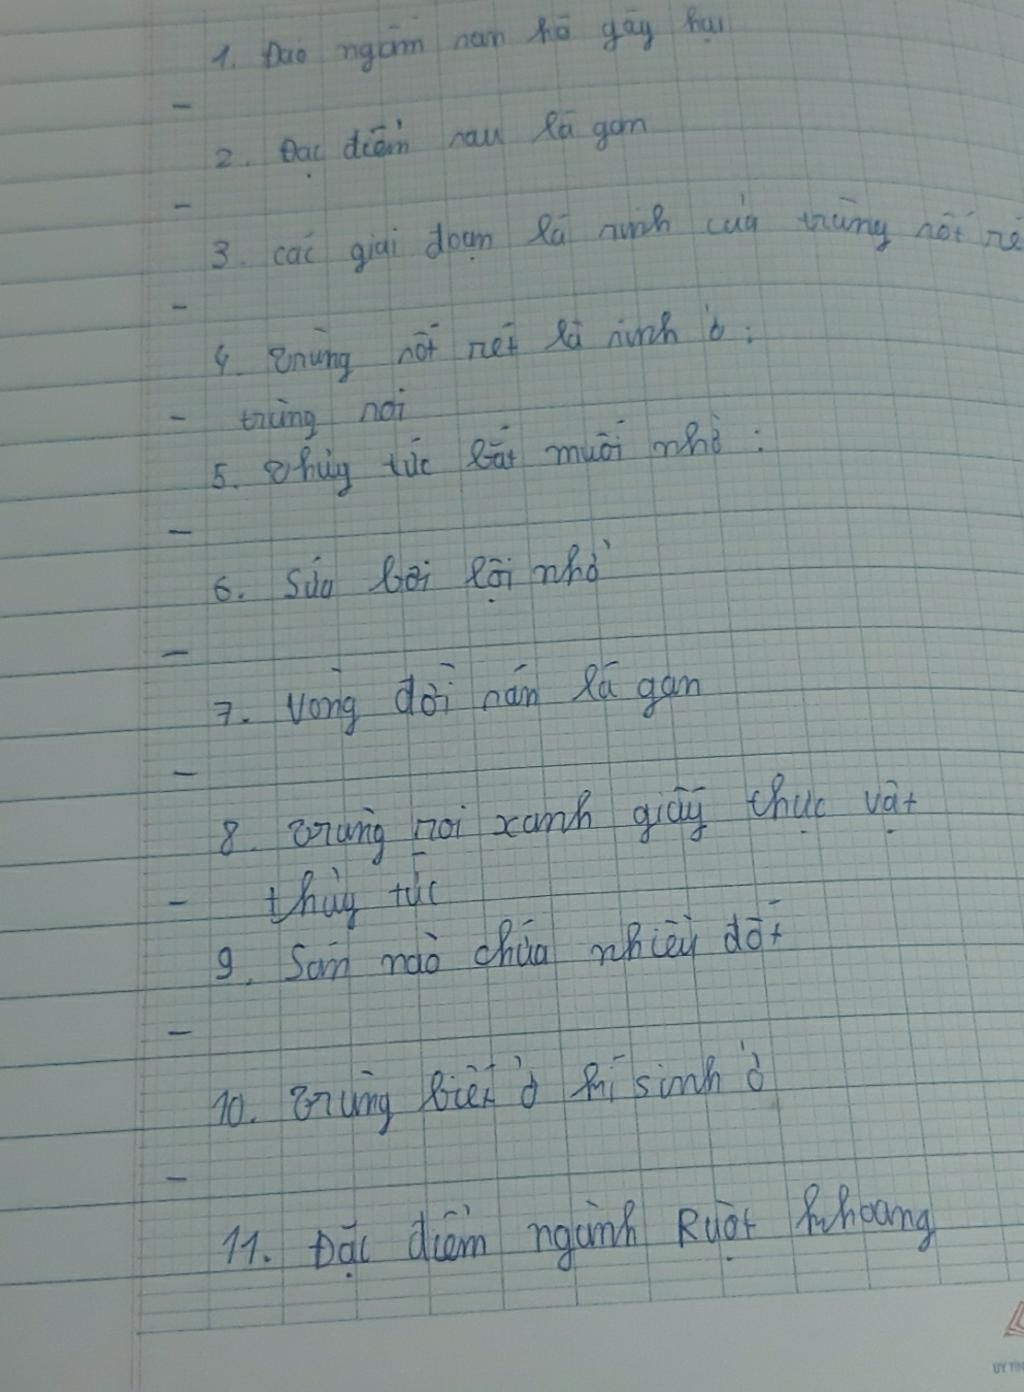 1. Đảo ngầm san hô gây hại
-
2. Đặc điểm sau lá gan
-
3. các giai đoạn kí sinh của trùng sốt ré
-
4. Trùng sốt rét kí sinh ở :
- trùng roi
5. Thủy tức bắt muồi nhờ :
-
6. Sứa bơi lội nhờ
-
7. Vòng đời sán lá gan
-
8. Trùng roi xanh giây thực vật
- thủy tức
9. Sán nào chứa nhiều đốt
-
10. Trùng biết ở kí sinh ở
-
11. Đặc điểm ngành Ruột khoang
UY TÍN